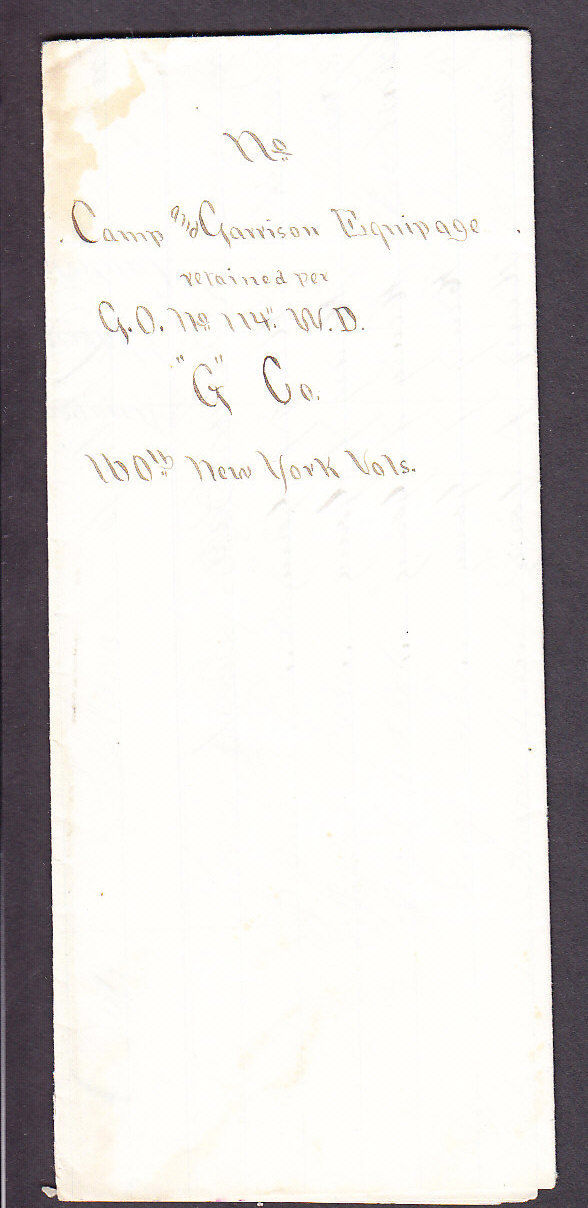 No
Camp and Garrison Equipage
retained per
G.O. No. 114. W.D.
"G" Co.
160th New York Vols.